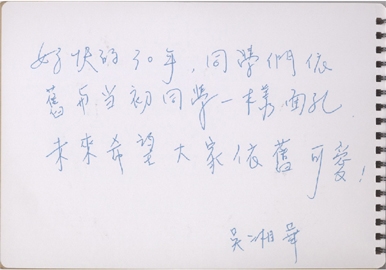 好快的30年,同學們依
舊而当初同學一樣面孔
未來希望大家依舊可愛!
吳湘